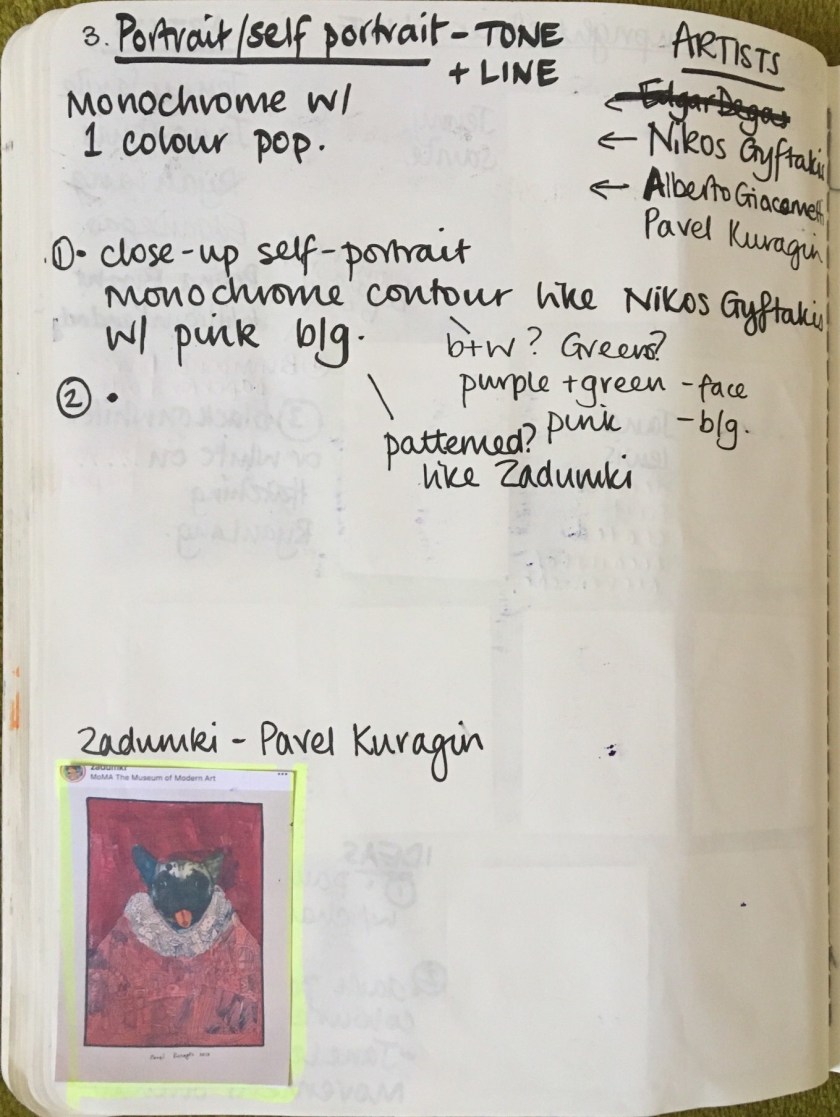 3. Portrait/self portrait - TONE
+ LINE
Monochrome w/
1 colour pop.
ARTISTS
← Edgar Degas
← Nikos Gyftakis
← Alberto Giacometti
Pavel Kuragin
①• close-up self-portrait
monochrome contour like Nikos Gyftakis
w/ pink b/g.
b+w? Greens?
purple + green - face
pink - b/g.
patterned?
like Zadumki
② •
Zadumki - Pavel Kuragin
zadumki
MoMA The Museum of Modern Art